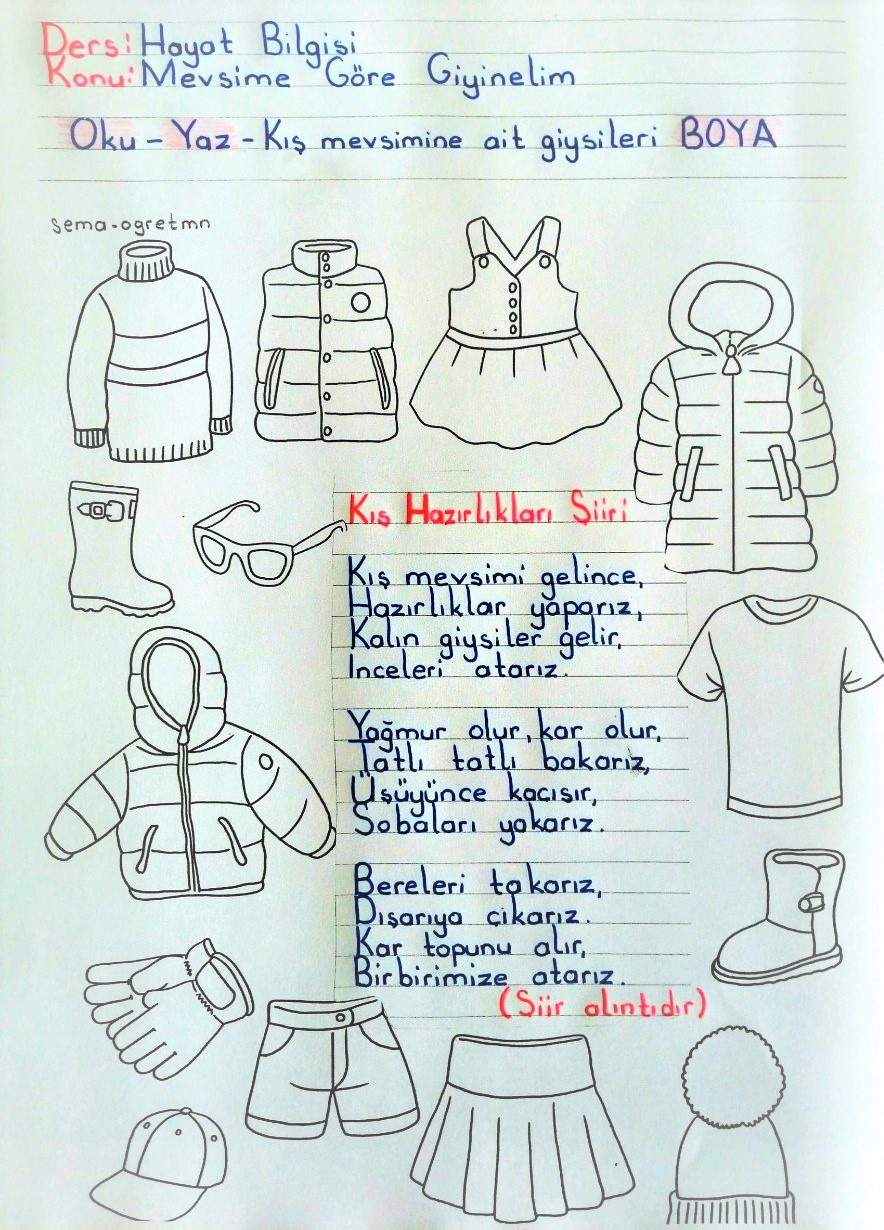 Ders: Hayat Bilgisi
Konu: Mevsime Göre Giyinelim
Oku - Yaz - Kış mevsimine ait giysileri BOYA
sema-ogretmn
Kış Hazırlıkları Şiiri
Kış mevsimi gelince,
Hazırlıklar yaparız,
Kalın giysiler gelir,
İnceleri atarız.
Yağmur olur, kar olur,
Tatlı tatlı bakarız,
Üşüyünce kaçışır,
Sobaları yakarız.
Bereleri takarız,
Dışarıya çıkarız.
Kar topunu alır,
Birbirimize atarız.
(Şiir alıntıdır)